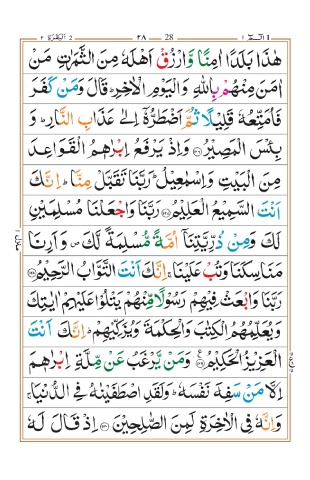 البقرة ٢ 2 ٢٨ 28 الٓمّٓ ١ 1
هٰذَا بَلَدًا اٰمِنًا وَّارْزُقْ اَهْلَهٗ مِنَ الثَّمَرٰتِ مَنْ
اٰمَنَ مِنْهُمْ بِاللّٰهِ وَالْيَوْمِ الْاٰخِرِ ؕ قَالَ وَمَنْ كَفَرَ
فَاُمَتِّعُهٗ قَلِيْلًا ثُمَّ اَضْطَرُّهٗۤ اِلٰى عَذَابِ النَّارِ ؕ وَ
بِئْسَ الْمَصِيْرُ ﴿۱۲۶﴾ وَاِذْ يَرْفَعُ اِبْرٰهٖمُ الْقَوَاعِدَ
مِنَ الْبَيْتِ وَاِسْمٰعِيْلُ ؕ رَبَّنَا تَقَبَّلْ مِنَّا ؕ اِنَّكَ
اَنْتَ السَّمِيْعُ الْعَلِيْمُ ﴿۱۲۷﴾ رَبَّنَا وَاجْعَلْنَا مُسْلِمَيْنِ
لَكَ وَمِنْ ذُرِّيَّتِنَاۤ اُمَّةً مُّسْلِمَةً لَّكَ ۪ وَاَرِنَا
مَنَاسِكَنَا وَتُبْ عَلَيْنَا ۚ اِنَّكَ اَنْتَ التَّوَّابُ الرَّحِيْمُ ﴿۱۲۸﴾
رَبَّنَا وَابْعَثْ فِيْهِمْ رَسُوْلًا مِّنْهُمْ يَتْلُوْا عَلَيْهِمْ اٰيٰتِكَ
وَيُعَلِّمُهُمُ الْكِتٰبَ وَالْحِكْمَةَ وَيُزَكِّيْهِمْ ؕ اِنَّكَ اَنْتَ
الْعَزِيْزُ الْحَكِيْمُ ﴿۱۲۹﴾ وَمَنْ يَّرْغَبُ عَنْ مِّلَّةِ اِبْرٰهٖمَ
اِلَّا مَنْ سَفِهَ نَفْسَهٗ ؕ وَلَقَدِ اصْطَفَيْنٰهُ فِى الدُّنْيَا ۚ
وَاِنَّهٗ فِى الْاٰخِرَةِ لَمِنَ الصّٰلِحِيْنَ ﴿۱۳۰﴾ اِذْ قَالَ لَهٗ